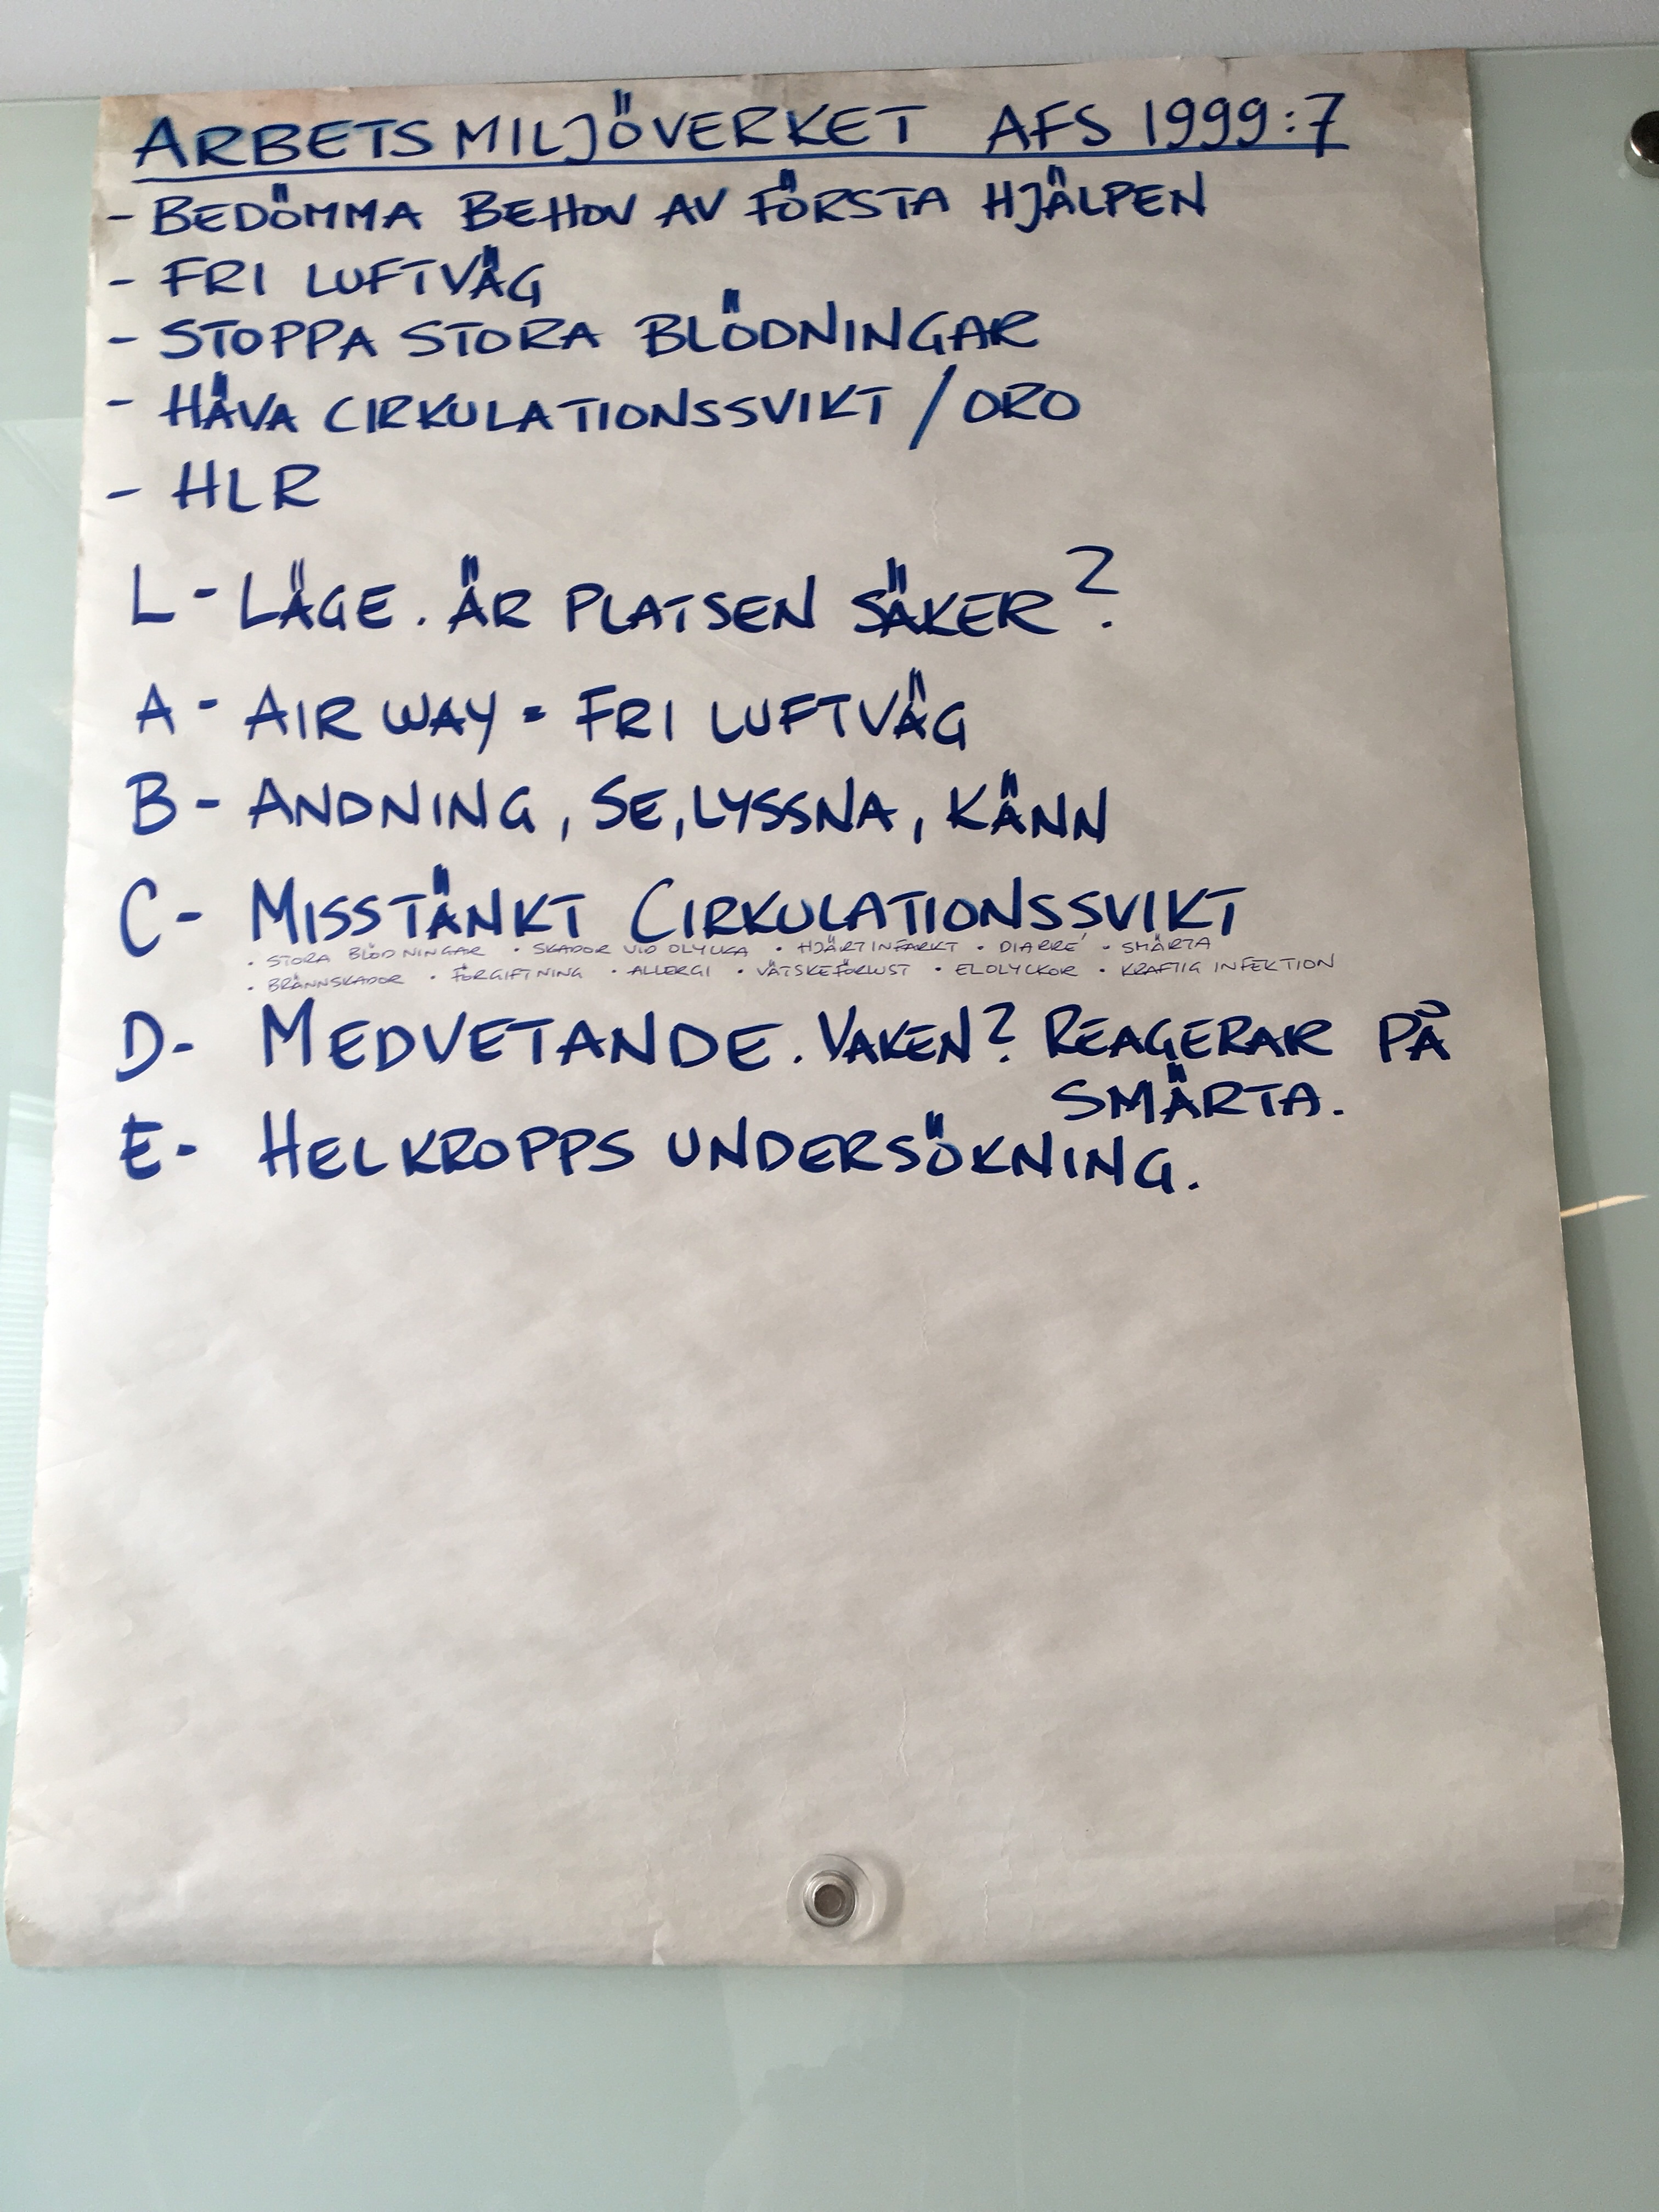 ARBETSMILJÖVERKET AFS 1999:7
- BEDÖMMA BEHOV AV FÖRSTA HJÄLPEN
- FRI LUFTVÄG
- STOPPA STORA BLÖDNINGAR
- HÄVA CIRKULATIONSSVIKT / ORO
- HLR
L - LÄGE. ÄR PLATSEN SÄKER?
A - AIRWAY = FRI LUFTVÄG
B - ANDNING, SE, LYSSNA, KÄNN
C - MISSTÄNKT CIRKULATIONSSVIKT
• STORA BLÖDNINGAR • SKADOR VID OLYCKA • HJÄRTINFARKT • DIARRÉ • SMÄRTA
• BRÄNNSKADOR • FÖRGIFTNING • ALLERGI • VÄTSKEFÖRLUST • ELOLYCKOR • KRAFTIG INFEKTION
D- MEDVETANDE. VAKEN? REAGERAR PÅ
SMÄRTA.
E- HELKROPPS UNDERSÖKNING.